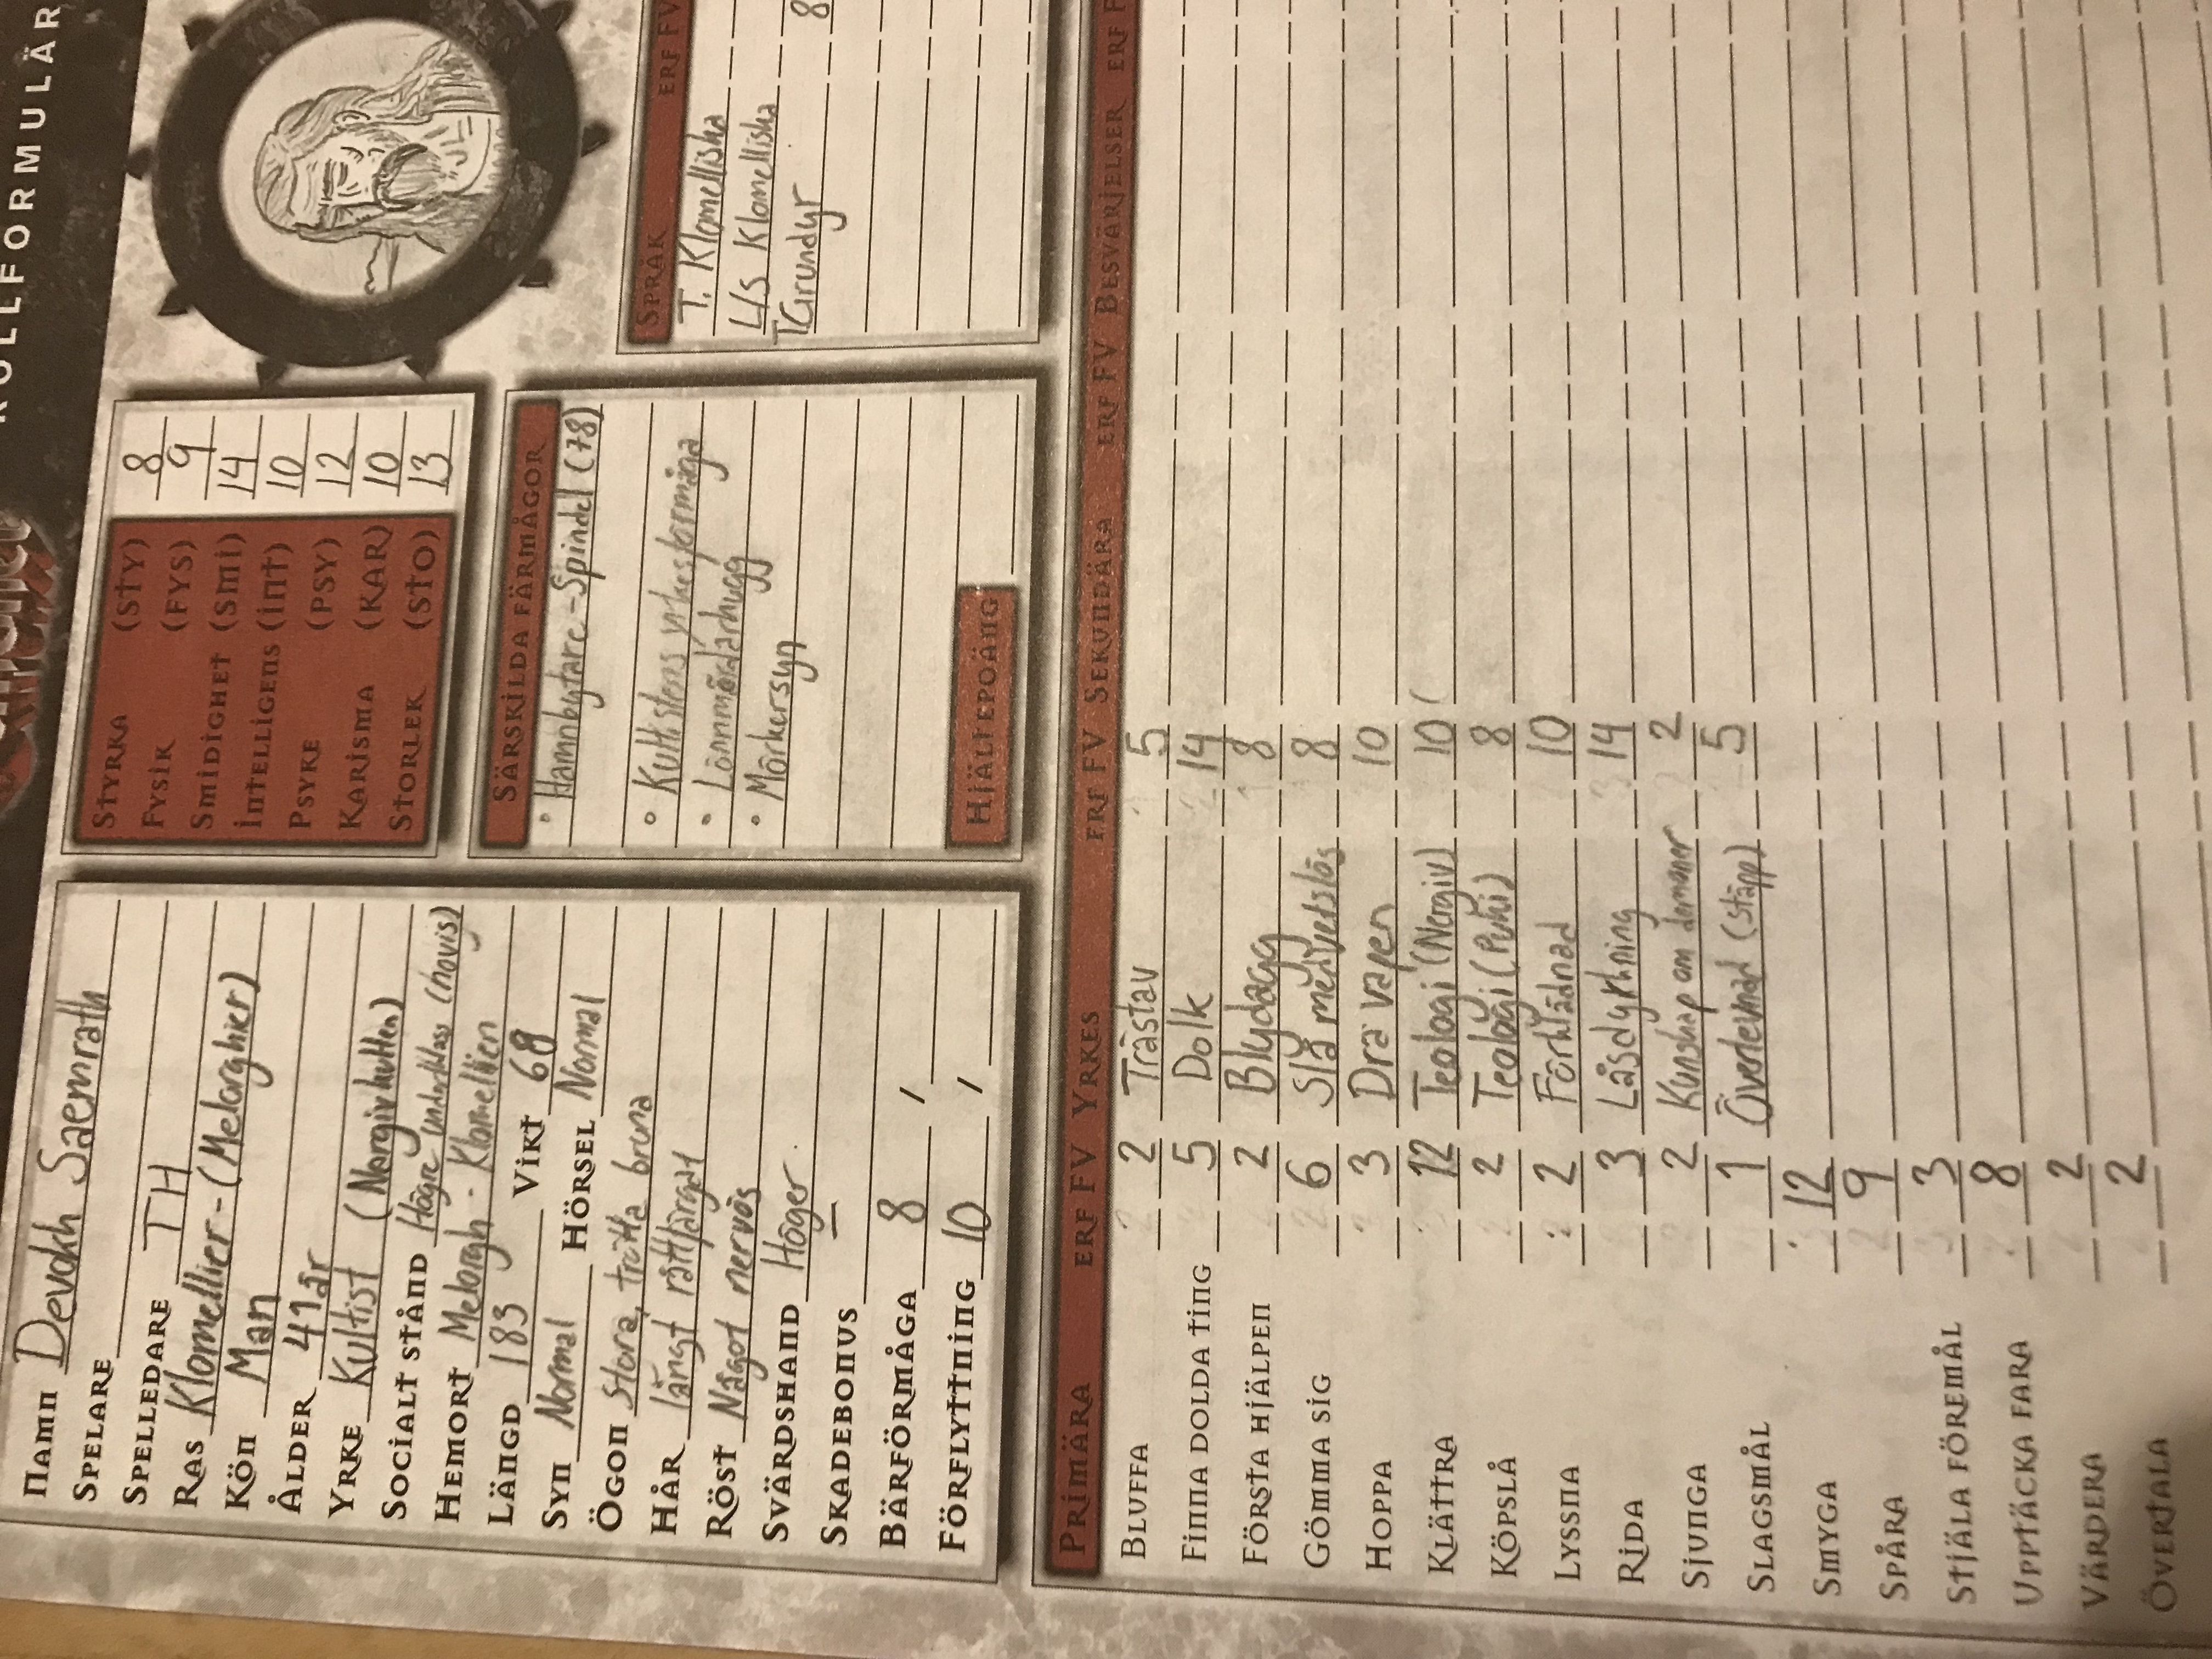 ROLLFORMULÄR
Namn Devokh Saemrath
Spelare
Spelledare TH
Ras Klomellier - (Melorghier)
Kön Man
Ålder 41 år
Yrke Kultist (Nergivkulten)
Socialt stånd Högre underklass (novis)
Hemort Melorgh - Klomellien
Längd 183 Vikt 68
Syn Normal Hörsel Normal
Ögon stora, trötta bruna
Hår långt råttfärgat
Röst Något nervös
Svärdshand Höger
Skadebonus –
Bärförmåga 8 , 
Förflyttning 10 ,
Styrka (STY) 8
Fysik (FYS) 9
Smidighet (SMI) 14
Intelligens (INT) 10
Psyke (PSY) 12
Karisma (KAR) 10
Storlek (STO) 13
Särskilda färmågor
• Hamnbytare - Spindel (78)
• Kultistens yrkesförmåga
• Lönnmördarhugg
• Mörkersyn
Hjältepoäng
Språk ERF FV
T. Klomelliska
L/S Klomelliska
T Grundyr 8
Primära ERF FV Yrkes ERF FV Sekundära ERF FV Besvärjelser ERF F
Bluffa 2 Trästav 5
Finna dolda ting 5 Dolk 14
Första hjälpen 2 Blydagg 8
Gömma sig 6 Slå medvetslös 8
Hoppa 3 Dra vapen 10
Klättra 12 Teologi (Nergiv) 10
Köpslå 2 Teologi (Puhi) 8
Lyssna 2 Förklädnad 10
Rida 3 Låsdyrkning 14
Sjunga 2 Kunskap om demoner 2
Slagsmål 1 Överlevnad (stäpp) 5
Smyga 12
Spåra 9
Stjäla föremål 3
Upptäcka fara 8
Värdera 2
Övertala 2